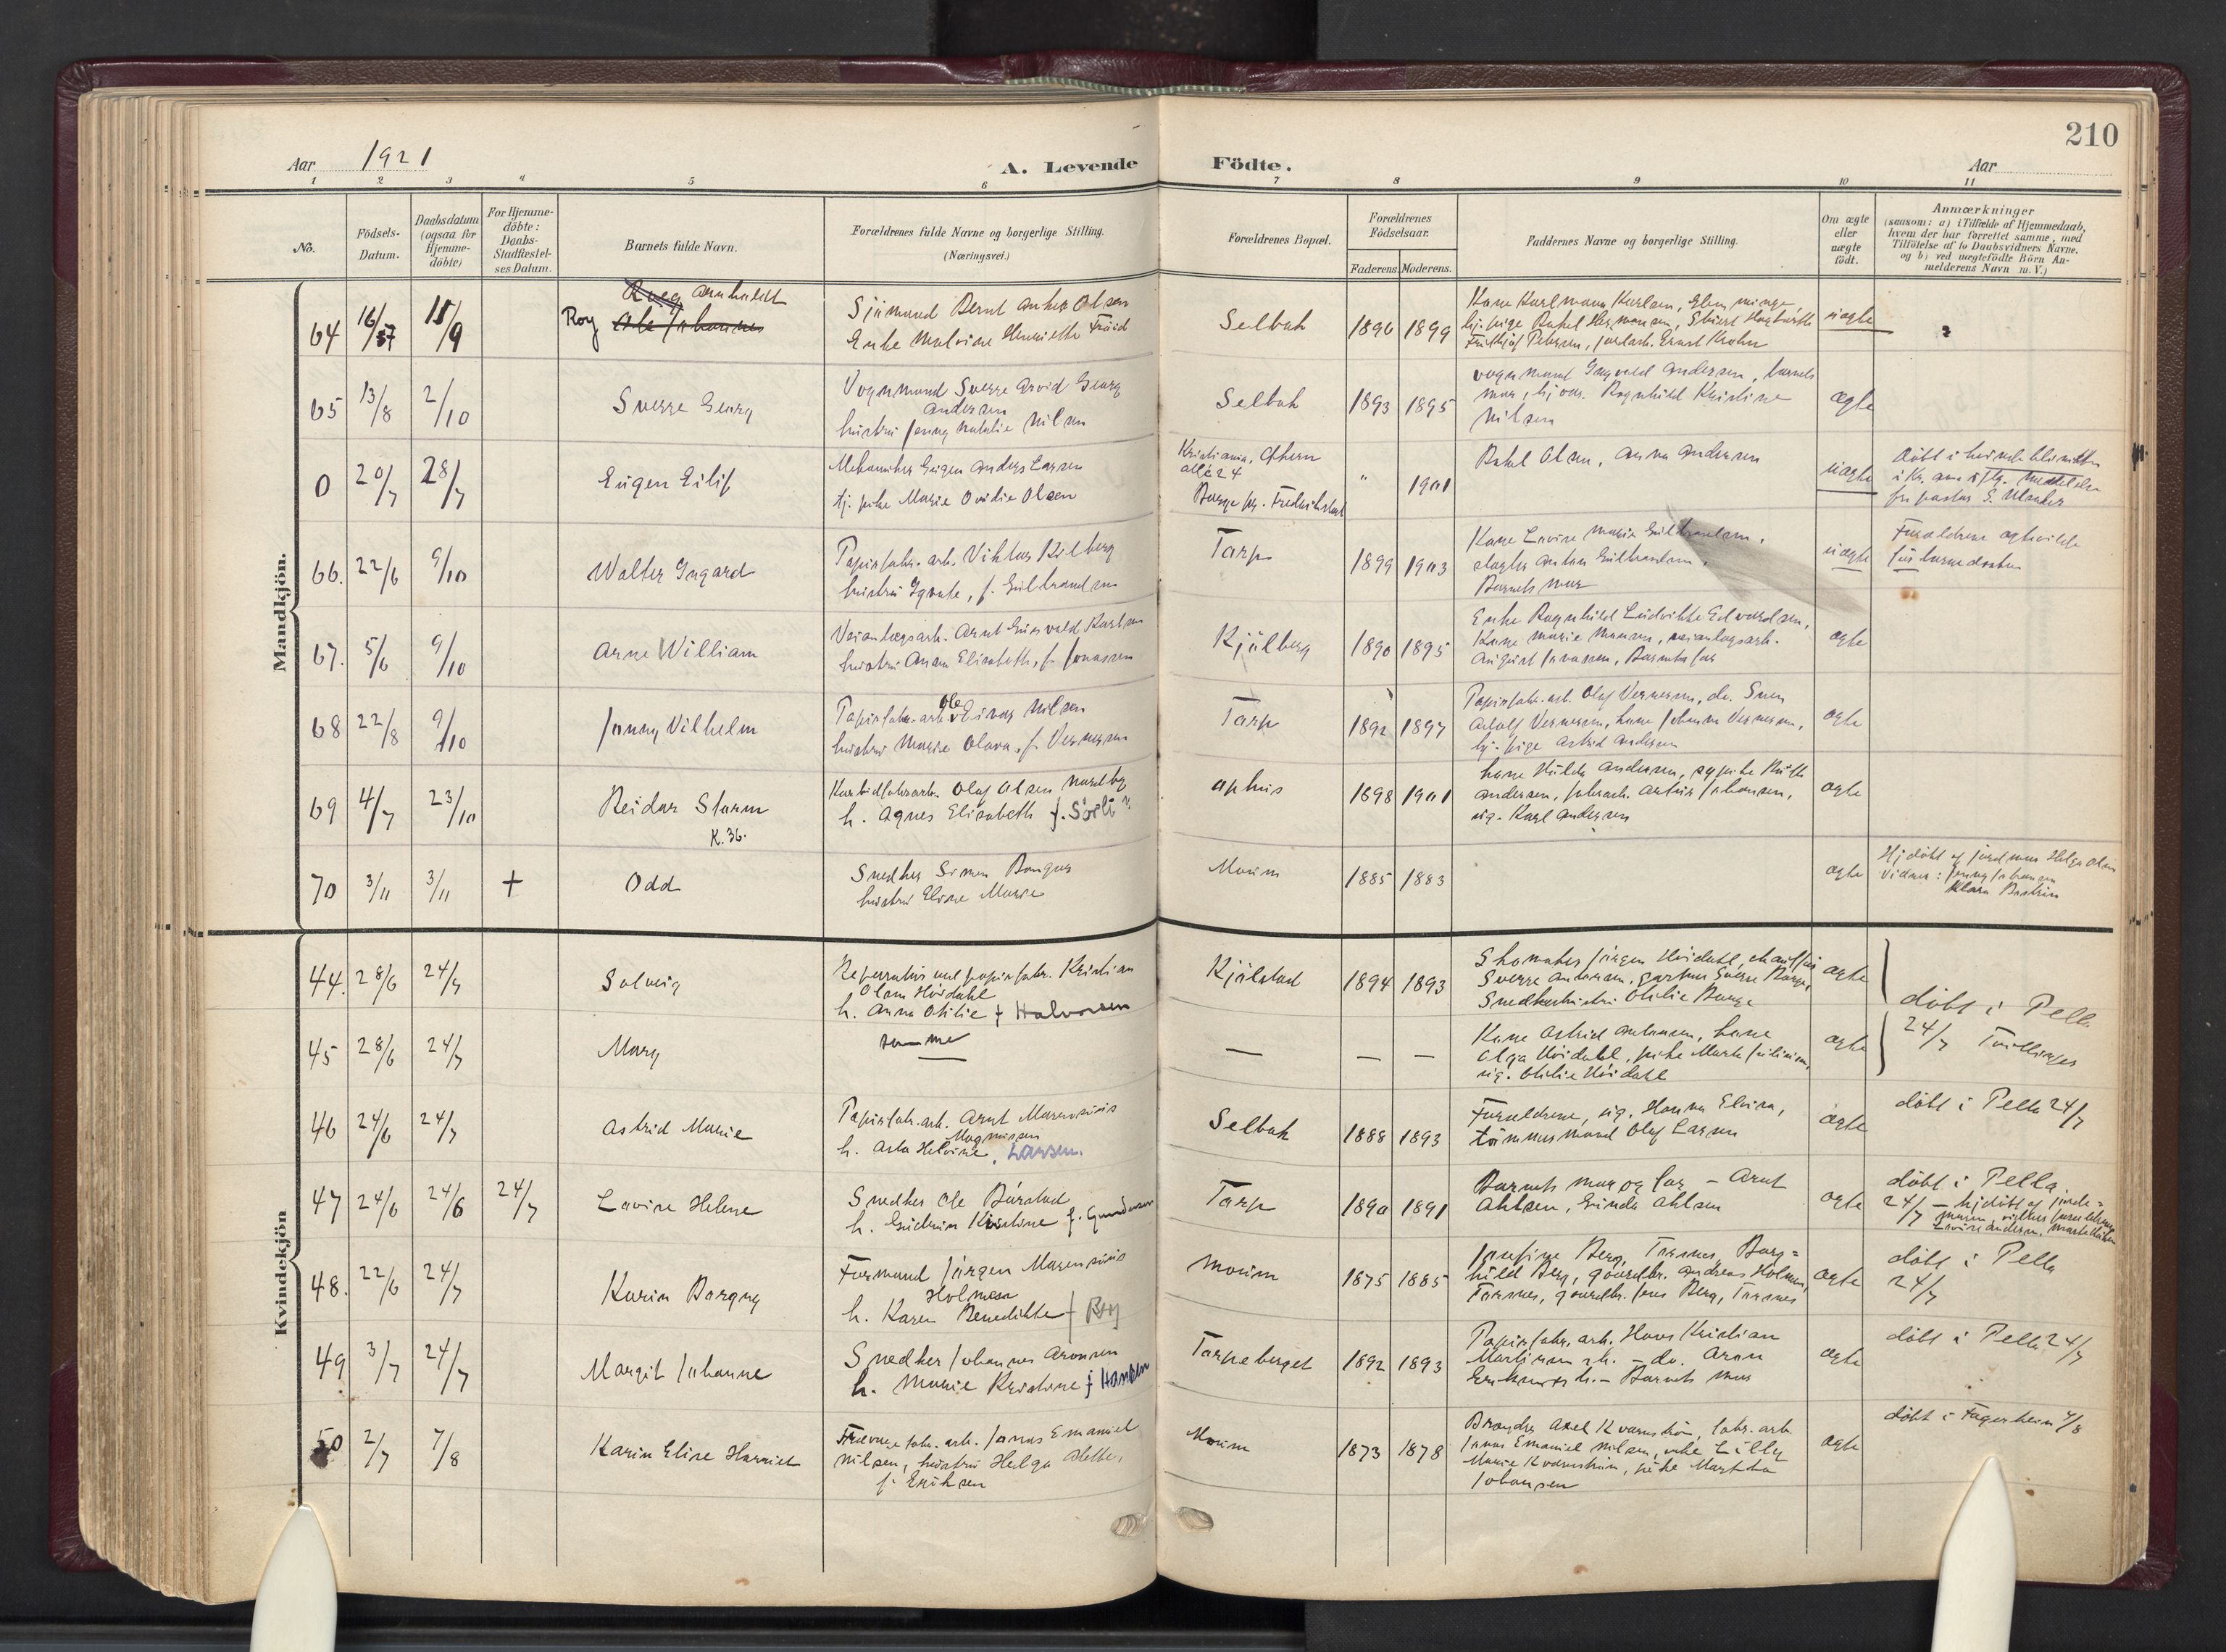 210
Aar 1921
A. Levende Födte.
Aar
1 2 3 4 5 6 7 8 9 10 11
No.
Födsels-Datum.
Daabsdatum (ogsaa for Hjemme-döbte)
For Hjemme-döbte: Daabs-Stadfæstel-ses Datum.
Barnets fulde Navn.
Forældrenes fulde Navne og borgerlige Stilling. (Næringsvei.)
Forældrenes Bopæl.
Forældrenes Födselsaar.
Faderens. Moderens.
Faddernes Navne og borgerlige Stilling.
Om ægte eller uægte födt.
Anmærkninger
(saasom: a) i Tilfælde af Hjemmedaab,
hvem der har forrettet samme, med
Tilföielse af to Daabsvidners Navne.
og b) ved uægtefödte Börn An-
melderens Navn m. V.)
Mandkjön.
64 18/9 Roy Arnholdt
Sjömand Bernt Olsen
Enke Malvine Henriette
Selbak 1896 1899
uægte
65 13/8 2/10 Sverre Georg
Vognmand Sverre Arvid Georg
Andersen
hustru Jenny Natalie Nilsen
Selbak 1893 1895
vognmand Ingvald Andersen, barnets
mor, Ragnhild Kristine
Nilsen
ægte
0 20/7 28/7 Eugen Eilif
Mekaniker Eugen Anders Larsen
tj. pike Marie Ovidie Olsen
Kristiania,
alle 24
Borge pr. Fredrikstad
" 1901
Rakel Olsen, Anna Andersen
uægte
66. 22/6 9/10 Walter Ingard
Papirfabr. arb. Viktor Kilberg
hustru f. Gulbrandsen
Torp 1899 1903
Kone Lovise Marie Gulbrandsen,
Anton Gulbrandsen,
Barnets mor
uægte
67. 5/6 9/10 Arne William
Veianlægsarb. Arnt Karlsen
hustru Anna Elisabeth, f. Jonassen
Kjölberg 1890 1895
Enke Ragnhild Ludvikke Edvardsen,
Kone Marie veianlægsarb.
August Jonassen, Barnets far
ægte
68 22/8 9/10 Jonny Vilhelm
Papirfabr. arb. Ole Einar Nilsen
hustru Marie Olava, f. Vernersen
Torp 1892 1897
Papirfabr. arb. Olaf Vernersen, do. Sven
Adolf Vernersen, kone Johanne Vernersen,
tj. pige Astrid Andersen
ægte
69 4/7 23/10 Reidar Storm
K. 36.
Karbidfabrarb. Olaf Olsen Nordby
h. Agnes Elisabeth f. Sörli
Ophus 1898 1901
kone Hilda Andersen, sypike Ruth
Andersen, fabrarb. Artur Johansen,
ug. Karl Andersen
ægte
70 3/11 3/11 + Odd
Snedker Simen
hustru Elise Marie
Moum 1885 1883
ægte
Hj. döbt af jordmor Helga Olsen
Vidner: Jenny Johansen
Klara
Kvindekjön
44. 28/6 24/7 Solveig
Reparatör ved papirfabr. Kristian
Olsen Höidahl
h. Anna Otilie f Halvorsen
Kjölstad 1894 1893
Skomaker Jörgen Höidahl, chauffør
Sverre Andersen, gartner Sverre Borge,
Snedkerhustru Otilie Borge
ægte
döbt i Pella
24/7 Tvillinger
45 28/6 24/7 Mary
samme
— — —
Kone Astrid Antonsen, kone
Olga Höidahl, pike Marta
ug. Otilie Höidahl
ægte
46 24/6 24/7 Astrid Marie
Papirfabr. arb. Arnt Marensius
Magnussen
h. Asta Helvine, Larsen.
Selbak 1888 1893
Forældrene, ug. Hanna Elvira,
tömmermand Olaf Larsen
ægte
döbt i Pella 24/7
47 24/6 24/6 24/7 Lovise Helene
Snedker Ole Börstad
h. Gudrun Kristine f. Gundersen
Torp 1890 1891
Barnets mor og far – Arnt
Ahlsen, Gunda Ahlsen
ægte
döbt i Pella.
24/7 – hj. döbt af jorde-
moren
48. 22/6 24/7 Karin Borgny
Formand Jörgen Marensius
Holmsen
h. Karen Benedikte f Berg
Moum 1875 1885
Josefine Berg, Torsnes, Borg-
hild Berg, gaardbr. Andreas Holmsen,
Torsnes, gaardbr. Jens Berg, Torsnes
ægte
döbt i Pella
24/7
49 3/7 24/7 Margit Johanne
Snedker Johannes Aronsen
h. Marie Kristine f Hansen
Torpeberget 1892 1893
Papirfabr. arb. Hans Kristian
Martinsen h. – do. Aron
Barnets mor
ægte
döbt i Pella 24/7
50 2/7 7/8 Karin Elise Harriet
fabr. arb. Jonas Emanuel
Nilsen, hustru Helga Alette,
f. Eriksen
Moum 1873 1878
Axel Kvarnström, fabr. arb.
Jonas Emanuel Nilsen, Lilly
Marie Kvarnström, pike Martha
Johansen
ægte
döbt i Fagerheim 7/8